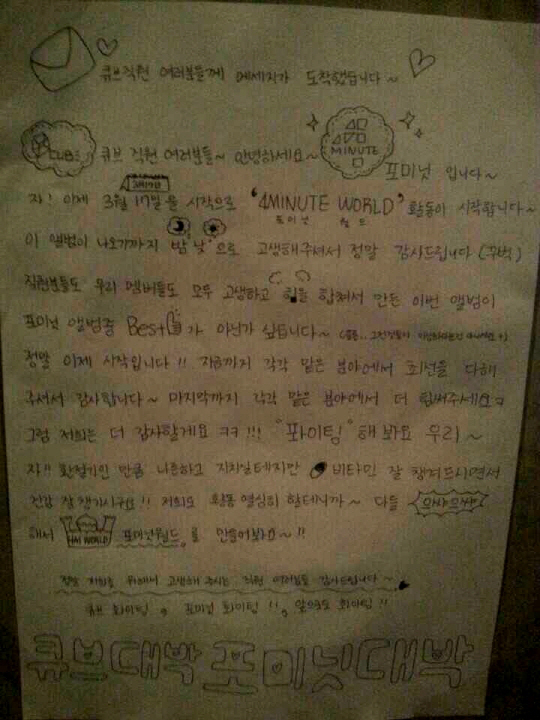 큐브직원 여러분들께 메세지가 도착했습니다~
CUBE 큐브 직원 여러분들~ 안녕하세요~ 4MINUTE 포미닛 입니다~
자! 이제 3월 17일을 시작으로 '4MINUTE WORLD' 활동이 시작됩니다~
포미닛 월드
이 앨범이 나오기까지 밤낮으로 고생해주셔서 정말 감사드립니다 (꾸벅)
직원분들도 우리 멤버들도 모두 고생하고 힘을 합쳐서 만든 이번 앨범이
포미닛 앨범중 Best가 아닌가 싶습니다~
정말 이제 시작입니다!! 지금까지 각각 맡은 분야에서 최선을 다해
주셔서 감사합니다~ 마지막까지 각각 맡은 분야에서 더 힘써주세요
그럼 저희는 더 감사할게요 ㅋㅋ!!! "퐈이팅" 해봐요 우리~
자!! 환절기인 만큼 나른하고 지치실테지만 비타민 잘 챙겨드시면서
건강 잘 챙기시구요!! 저희도 활동 열심히 할테니까~ 다들 으쌰으쌰
해서 포미닛월드를 만들어봐요~!!
정말 저희를 위해서 고생해 주시는 직원 여러분들 감사드립니다~
큐브 화이팅, 포미닛 화이팅!!, 앞으로도 화이팅!!
큐브대박 포미닛대박